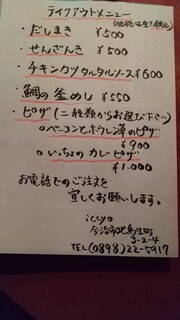 テイクアウトメニュー
(価格は全て税込)
・だしまき ¥500
・せんざんき ¥500
・チキンカツタルタルソース ¥600
・鯛の釜めし ¥550
・ピザ(二種類からお選び下さい)
○ベーコンとホウレン草のピザ
¥900
○いっちょのカレーピザ
¥1.000
お電話でのご注文を
宜しくお願いします。
iccyo
今治市北鳥生町
3-2-4
TEL(0898)22-5917